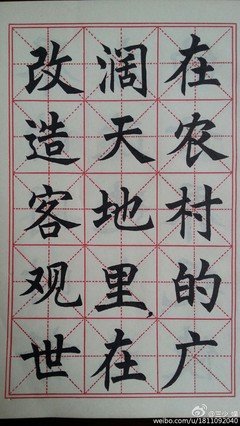 在农村的广
阔天地里,在
改造客观世
weibo.com/u/1811092040